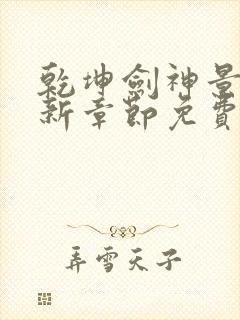 乾坤劍神景
新章節免費
弄雪天子